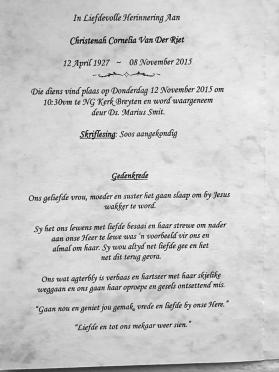 In Liefdevolle Herinnering Aan
Christenah Cornelia Van Der Riet
12 April 1927 ~ 08 November 2015
Die diens vind plaas op Donderdag 12 November 2015 om
10:30vm te NG Kerk Breyten en word waargeneem
deur Ds. Marius Smit.
Skriflesing: Soos aangekondig
Gedenkrede
Ons geliefde vrou, moeder en suster het gaan slaap om by Jesus
wakker te word.
Sy het ons lewens met liefde besaai en haar strewe om nader
aan onse Heer te lewe was 'n voorbeeld vir ons en
almal om haar. Sy wou altyd net liefde gee en het
net dit terug gevra.
Ons wat agterbly is verbaas en hartseer met haar skielike
weggaan en ons gaan haar oproepe en gesels ontsettend mis.
"Gaan nou en geniet jou gemak, vrede en liefde by onse Here."
"Liefde en tot ons mekaar weer sien."